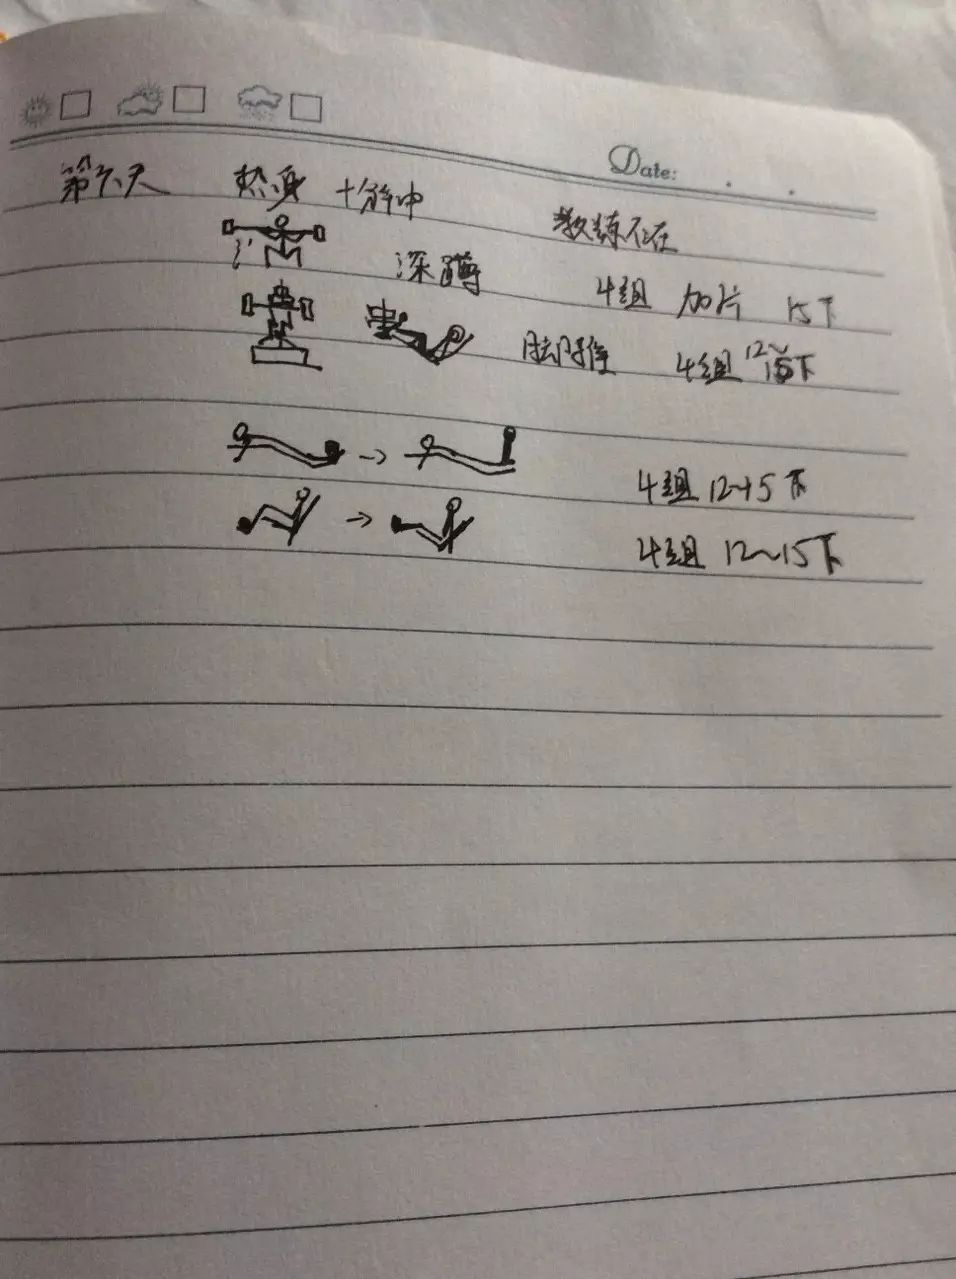 Date:
第六天 热身 十分钟
教练不在
深蹲 4组 加片 15下
4组 12~15下
4组 12~15下
4组 12~15下